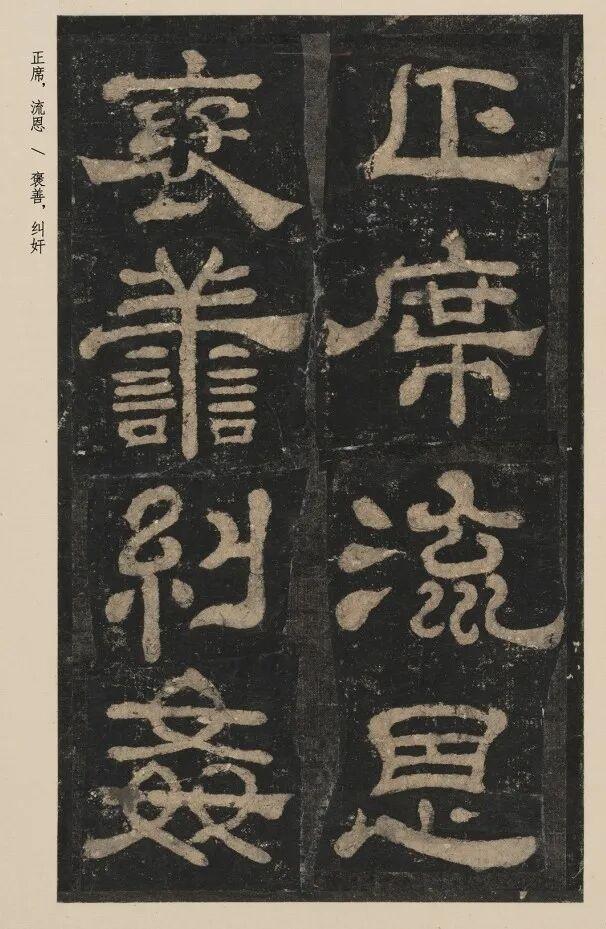 正席流恩
褒譱糾姦
正席，流恩 \ 褒善，纠奸